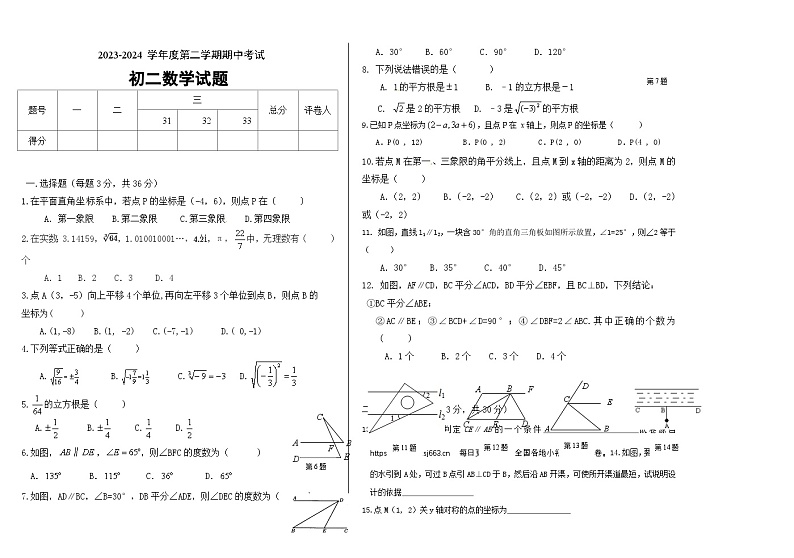 2023-2024 学年度第二学期期中考试
初二数学试题
题号 一 二 三 总分 评卷人
31 32 33
得分
一.选择题（每题3分，共36分）
1.在平面直角坐标系中，若点P的坐标是（-4，6），则点P在（ ）
A. 第一象限 B.第二象限 C.第三象限 D.第四象限
2.在实数 3.14159，∛64，1.010010001…，4.21，π，22/7中，无理数有（ ）
个
A．1 B．2 C．3 D．4
3.点A（3，-5）向上平移4个单位,再向左平移3个单位到点B，则点B的
坐标为( )
A.(1,-8) B.(1, -2) C.(-7,-1) D.( 0,-1)
4.下列等式正确的是（ ）
A. √(9/16)=±3/4 B. √(-1 7/9)=1 1/3 C. ∛-9=-3 D. √((-1/3)²)=1/3
5. 1/64的立方根是（ ）
A.±1/2 B.±1/4 C.1/4 D.1/2
6.如图，AB∥DE，∠E=65°，则∠BFC的度数为（ ）
A．135° B．115° C．36° D．65°
C
A B
F
D E
第6题
7.如图，AD∥BC，∠B=30°，DB平分∠ADE，则∠DEC的度数为（
A D
B E C
A．30° B．60° C．90° D．120°
第7题
8. 下列说法错误的是（ ）
A. 1的平方根是±1 B. –1的立方根是－1
C. √2是2的平方根 D. –3是√(−3)²的平方根
9.已知P点坐标为(2−a,3a+6)，且点P在x轴上，则点P的坐标是（ ）
A．P(0 , 12) B．P(0 , 2) C．P(2 , 0) D．P(4 , 0)
10.若点M在第一、三象限的角平分线上，且点M到x轴的距离为2，则点M的
坐标是（ ）
A.（2, 2） B.（-2, -2） C.（2, 2）或（-2, -2） D.（2, -2）
或（-2, 2）
11. 如图,直线l₁∥l₂,一块含30°角的直角三角板如图所示放置,∠1=25°,则∠2等于
（ ）
A．30° B．35° C．40° D．45°
12. 如图，AF∥CD，BC平分∠ACD，BD平分∠EBF，且BC⊥BD，下列结论：
①BC平分∠ABE；
②AC∥BE；③∠BCD+∠D=90°；④∠DBF=2∠ABC.其中正确的个数为
（ ）
A．1个 B．2个 C．3个 D．4个
2 l₁
1 l₂
A B F
C E D
D
C E
A B
C B D
A
二 3分，共30分）
1 判定CE∥AB的一个条件
第11题 第12题 第13题 第14题
https sj663.cn 每日更 全国各地小 卷。14.如图，要
的水引到A处，可过B点引AB⊥CD于B，然后沿AB开渠，可使所开渠道最短，试说明设
计的依据
15.点M（1，2）关y轴对称的点的坐标为